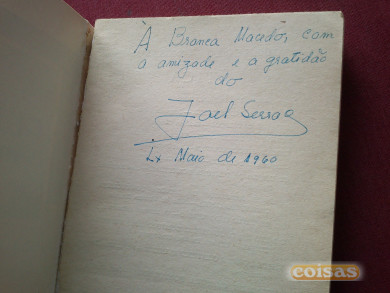 À Branca Macedo, com
a amizade e a gratidão
do
Joel Serrão
Lx Maio de 1960
coisas